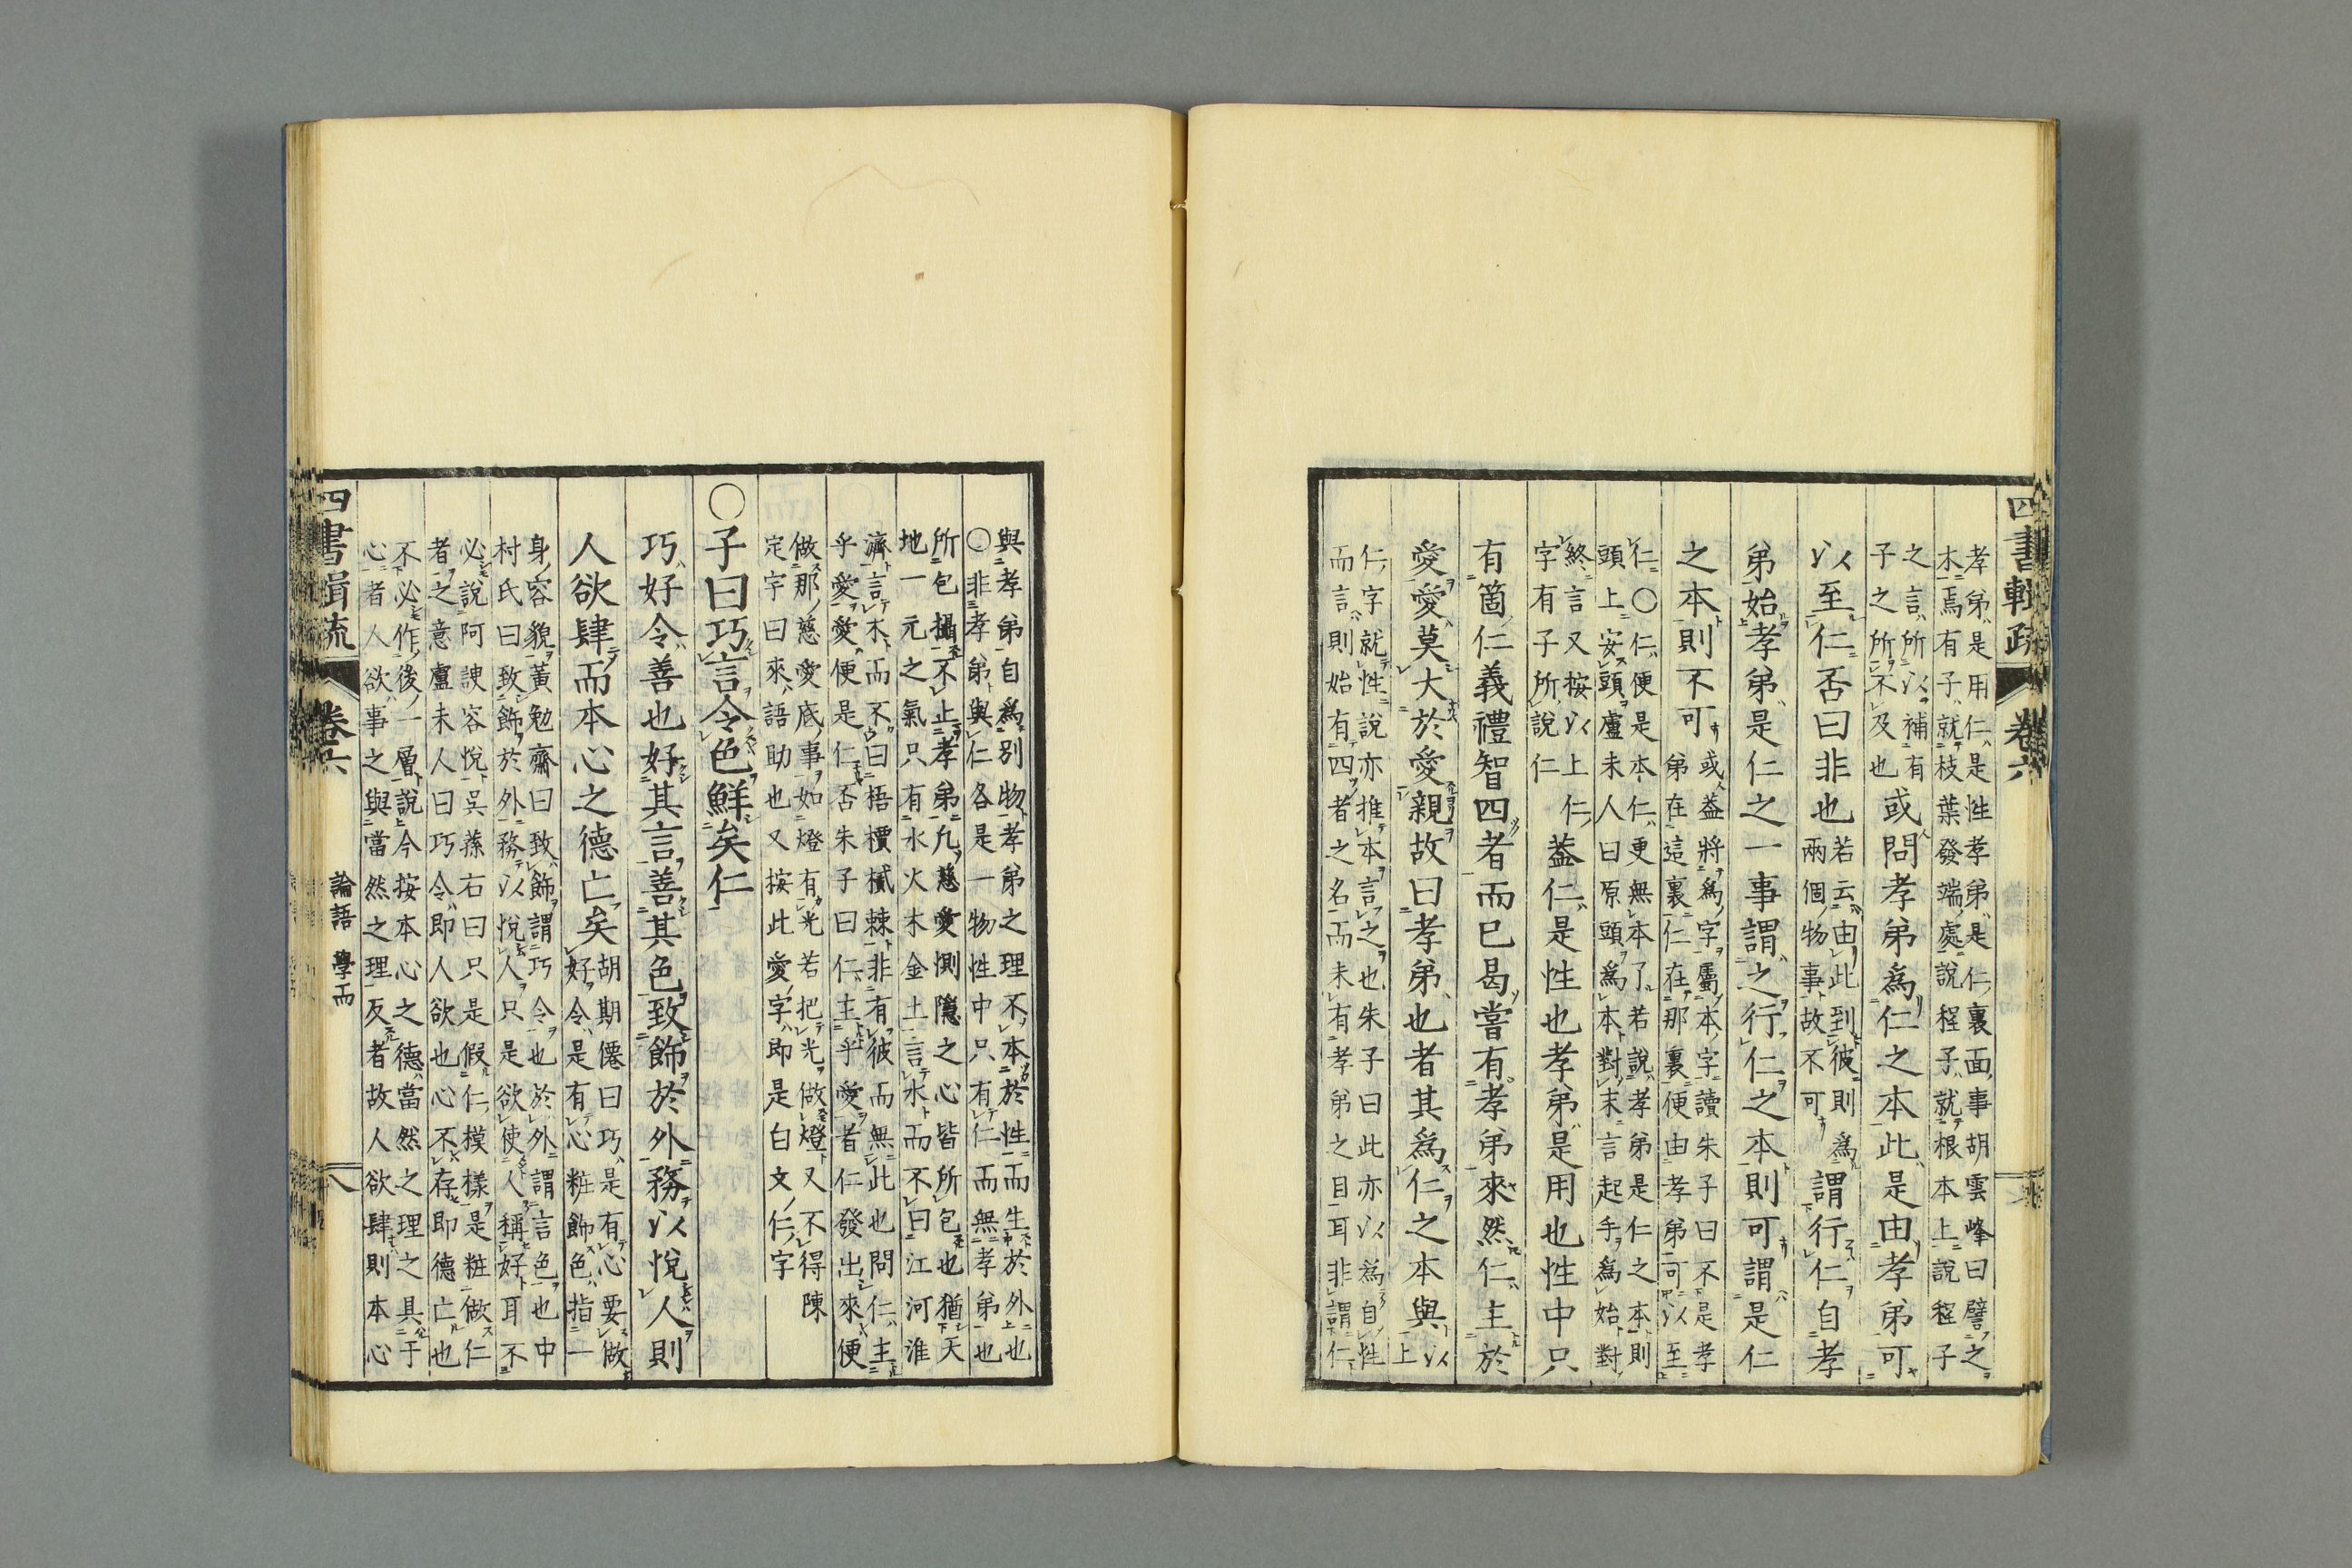 四書輯疏 卷六
孝弟是用仁是性孝弟是仁裏面事胡雲峰曰譬之
木焉有子就枝葉發端處說程子就根本上說程子
之言所以補有
子之所不及也
或問孝弟爲仁之本此是由孝弟可
以至仁否曰非也
若云由此到彼則爲
兩個物事故不可
謂行仁自孝
弟始孝弟是仁之一事謂之行仁之本則可謂是仁
之本則不可
或蓋將爲字屬本字讀朱子曰不是孝
弟在這裏仁在那裏便由孝弟可以至
仁○仁便是本仁更無本了若說孝弟是仁之本則
頭上安頭盧未人曰原頭爲本對末言起手爲始對
終言又按以上仁
字有子所說仁
蓋仁是性也孝弟是用也性中只
有箇仁義禮智四者而已曷嘗有孝弟來然仁主於
愛愛莫大於愛親故曰孝弟也者其爲仁之本與
以
上
仁字就性說亦推本言之也朱子曰此亦以爲自性
而言則始有四者之名而未有孝弟之目耳非謂仁
與孝弟自爲別物孝弟之理不本於性而生於外也
○非孝弟與仁各是一物性中只有仁而無孝弟也
所包攝不止孝弟凡慈愛惻隱之心皆所包也猶天
地一元之氣只有水火木金土言水而不曰江河淮
濟言木而不曰梧檟樲棘非有彼而無此也問仁主
乎愛愛便是仁否朱子曰仁主乎愛者仁發出來便
做那慈愛底事如燈有光若把光做燈又不得陳
定宇曰來語助也又按此愛字即是白文仁字
○子曰巧言令色鮮矣仁
巧好令善也好其言善其色致飾於外務以悅人則
人欲肆而本心之德亡矣
胡期僊曰巧是有心要做
好令是有心粧飾色指一
身容貌黃勉齋曰致飾謂巧令也於外謂言色也中
村氏曰致飾於外務以悅人只是欲使人稱好耳不
必說阿諛容悅吳蓀右曰只是假仁模樣是粧做仁
者之意盧未人曰巧令即人欲也心不存即德亡也
不必作後一層說今按本心之德當然之理之具于
心者人欲事之與當然之理反者故人欲肆則本心
四書輯疏 卷六 論語 學而 八